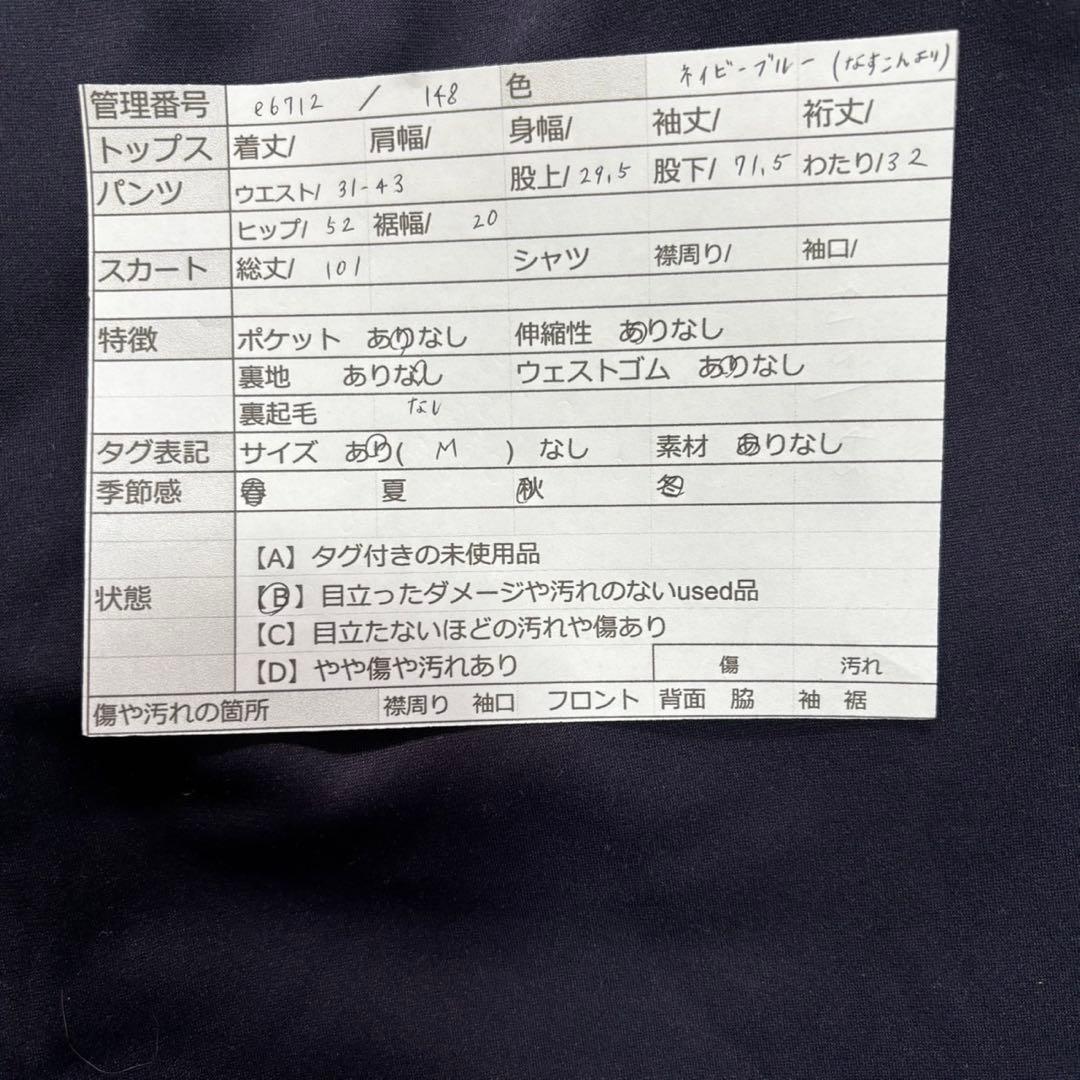 管理番号 e6712 / 148 色 ネイビーブルー (なすこんより)
トップス 着丈/ 肩幅/ 身幅/ 袖丈/ 裄丈/
パンツ ウエスト/ 31-43 股上/ 29.5 股下/ 71.5 わたり/ 32
ヒップ/ 52 裾幅/ 20
スカート 総丈/ 101 シャツ 襟周り/ 袖口/
特徴 ポケット ありなし 伸縮性 ありなし
裏地 ありなし ウェストゴム ありなし
裏起毛 なし
タグ表記 サイズ あり( M ) なし 素材 ありなし
季節感 春 夏 秋 冬
【A】タグ付きの未使用品
状態 【B】目立ったダメージや汚れのないused品
【C】目立たないほどの汚れや傷あり
【D】やや傷や汚れあり 傷 汚れ
傷や汚れの箇所 襟周り 袖口 フロント 背面 脇 袖 裾